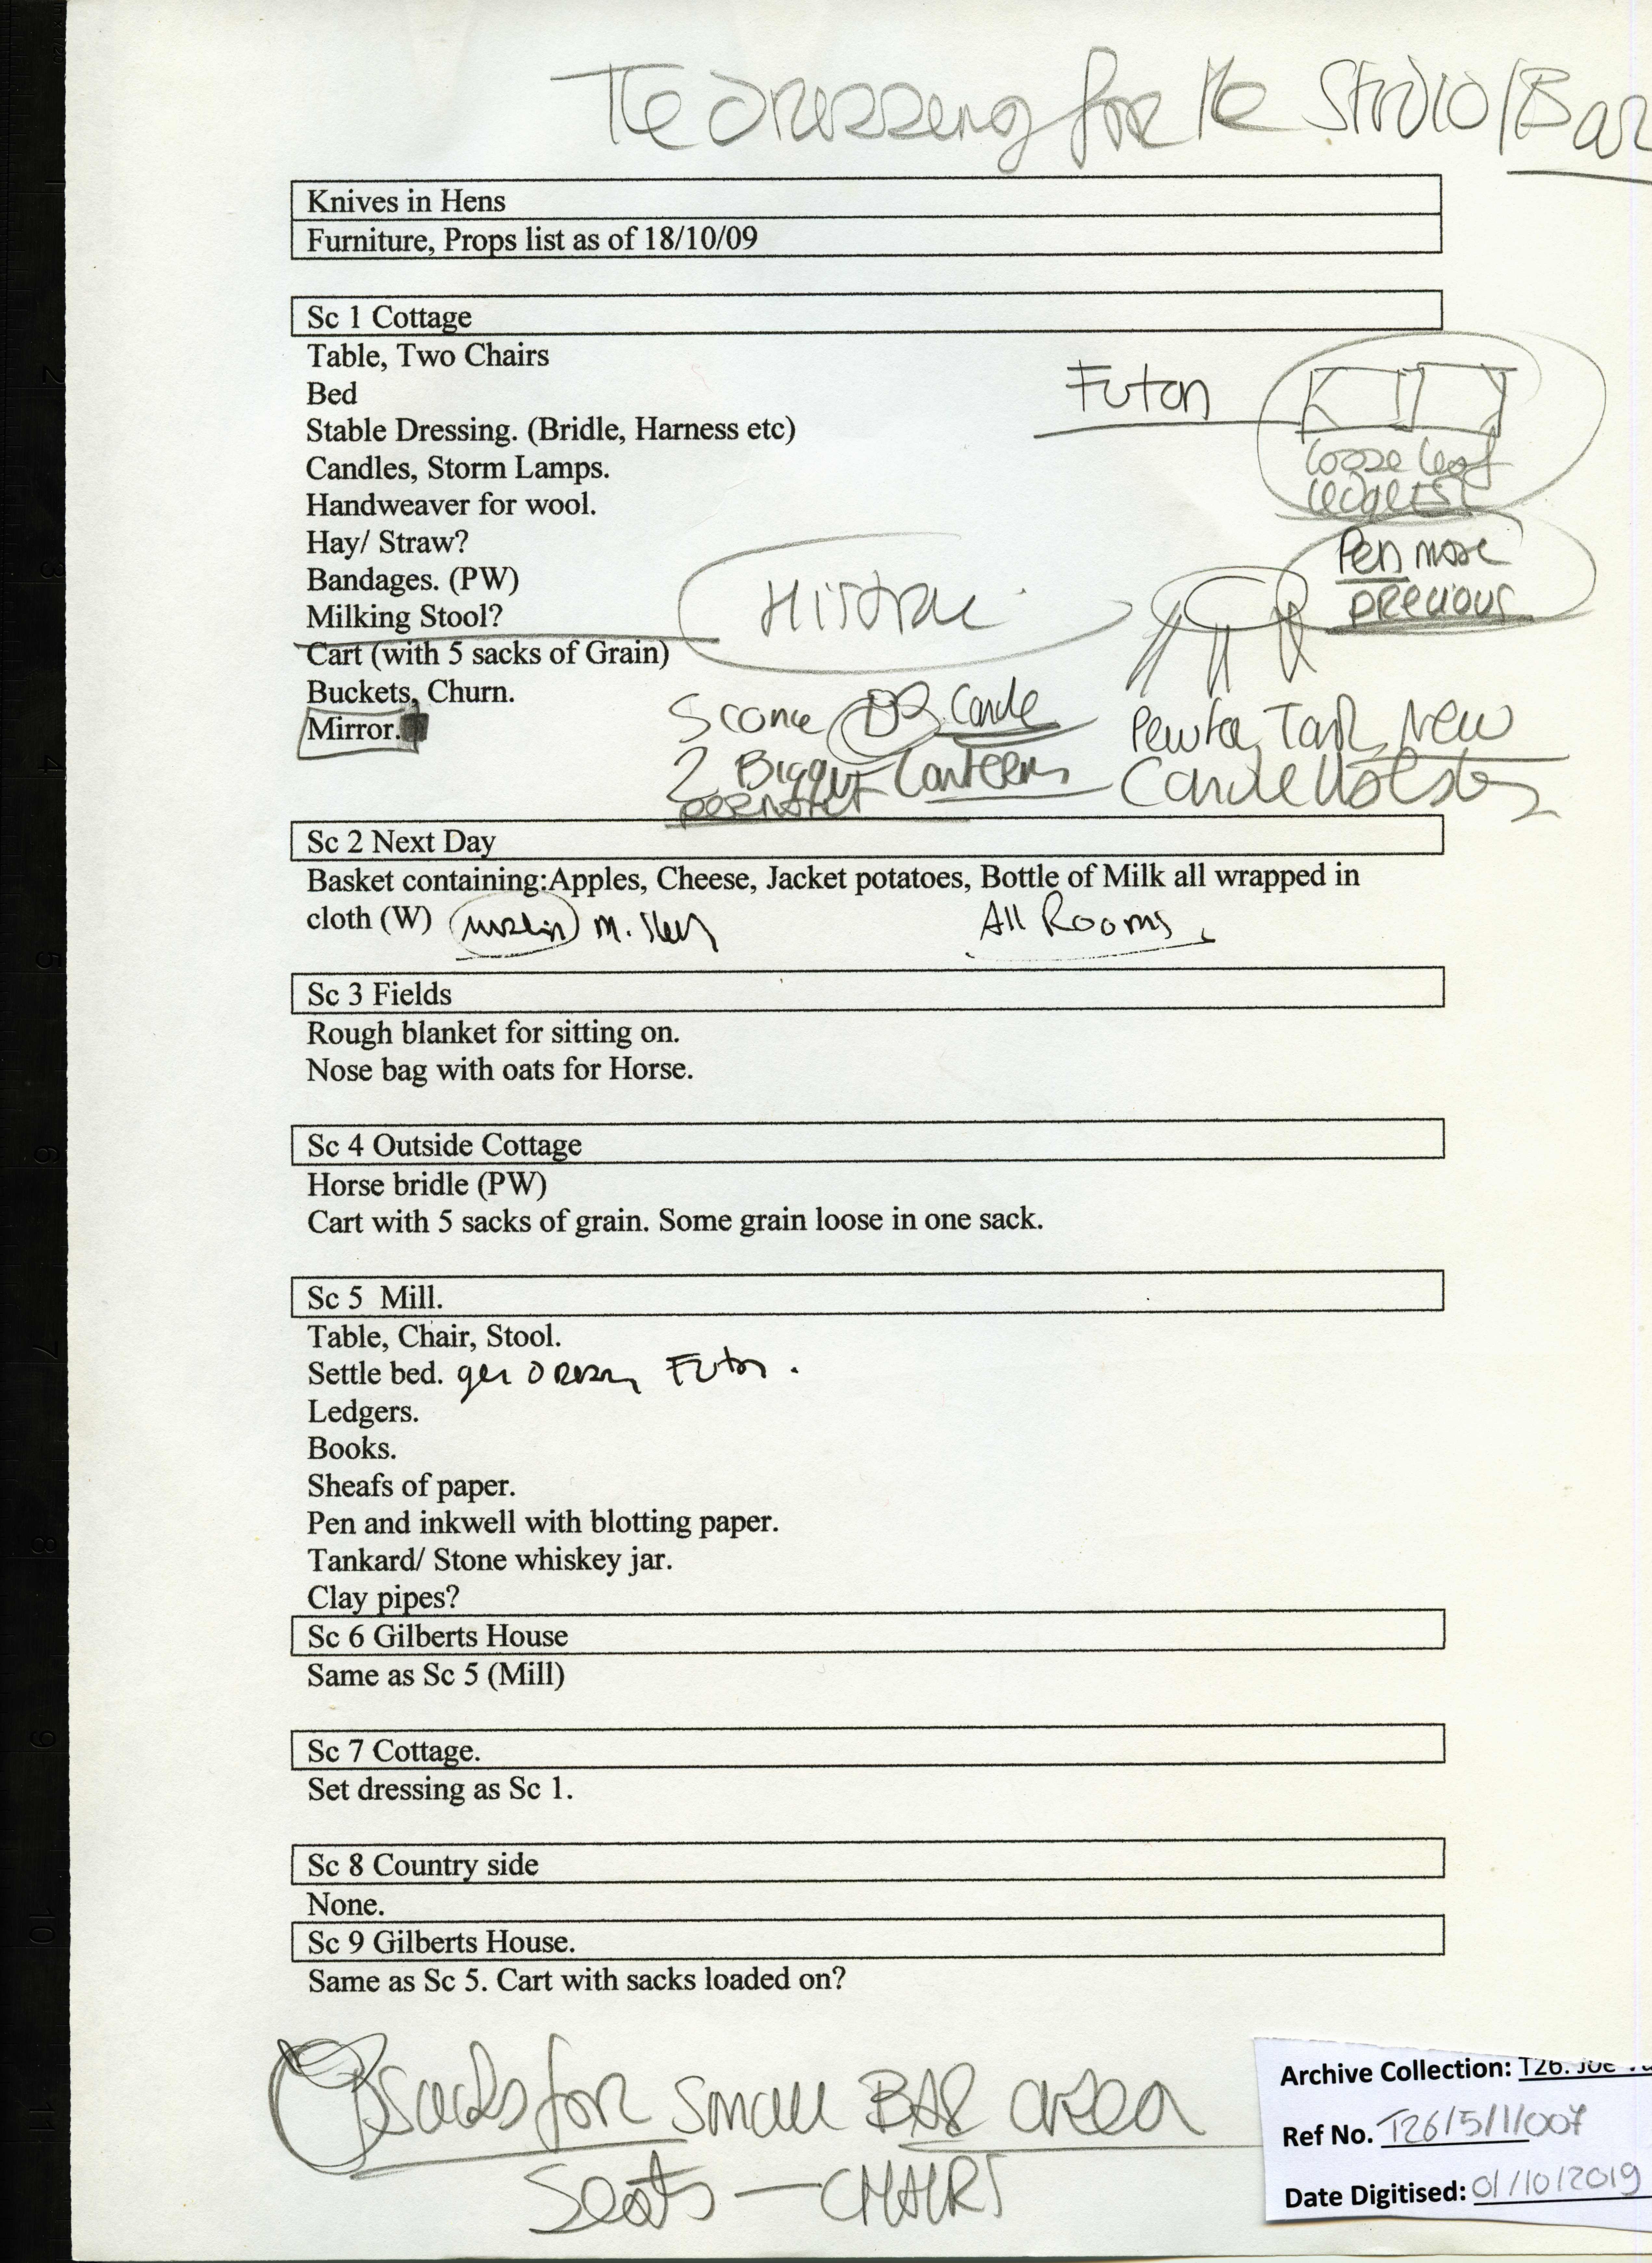 The Dressing for the Studio/Bar
Knives in Hens
Furniture, Props list as of 18/10/09
Sc 1 Cottage
Table, Two Chairs
Bed
Futon
Stable Dressing. (Bridle, Harness etc)
Candles, Storm Lamps.
loose leaf
Handweaver for wool.
Hay/ Straw?
Pen more
Bandages. (PW)
precious
Milking Stool?
Cart (with 5 sacks of Grain)
Buckets, Churn.
Mirror.
Sconce Candle
Pewter New
2 Bigger Lanterns
Candle Holders
Sc 2 Next Day
Basket containing:Apples, Cheese, Jacket potatoes, Bottle of Milk all wrapped in
cloth (W) muslin
All Rooms
Sc 3 Fields
Rough blanket for sitting on.
Nose bag with oats for Horse.
Sc 4 Outside Cottage
Horse bridle (PW)
Cart with 5 sacks of grain. Some grain loose in one sack.
Sc 5 Mill.
Table, Chair, Stool.
Settle bed. Futon.
Ledgers.
Books.
Sheafs of paper.
Pen and inkwell with blotting paper.
Tankard/ Stone whiskey jar.
Clay pipes?
Sc 6 Gilberts House
Same as Sc 5 (Mill)
Sc 7 Cottage.
Set dressing as Sc 1.
Sc 8 Country side
None.
Sc 9 Gilberts House.
Same as Sc 5. Cart with sacks loaded on?
Sacks for small BAR area
Seats — CHAIRS
Archive Collection: T26: Joe
Ref No. T26/5/1/007
Date Digitised: 01/10/2019